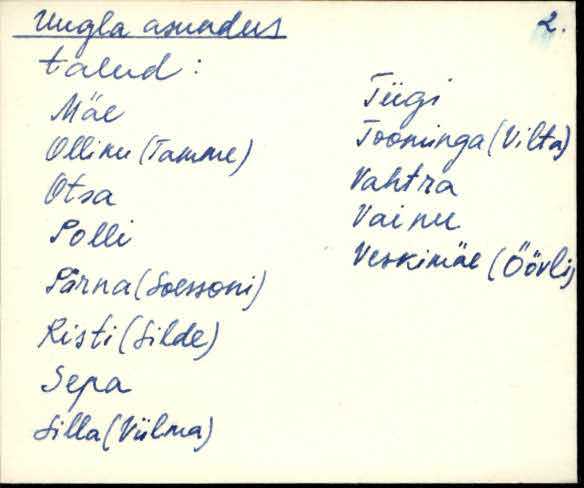 Ungla asundus
2.
talud:
Mäe
Ollinu (Tamme)
Otsa
Polli
Pärna (Soessoni)
Risti (Silde)
Sepa
Silla (Viilma)
Tiigi
Toominga (Vilta)
Vahtra
Vainu
Veskimäe (Öövli)